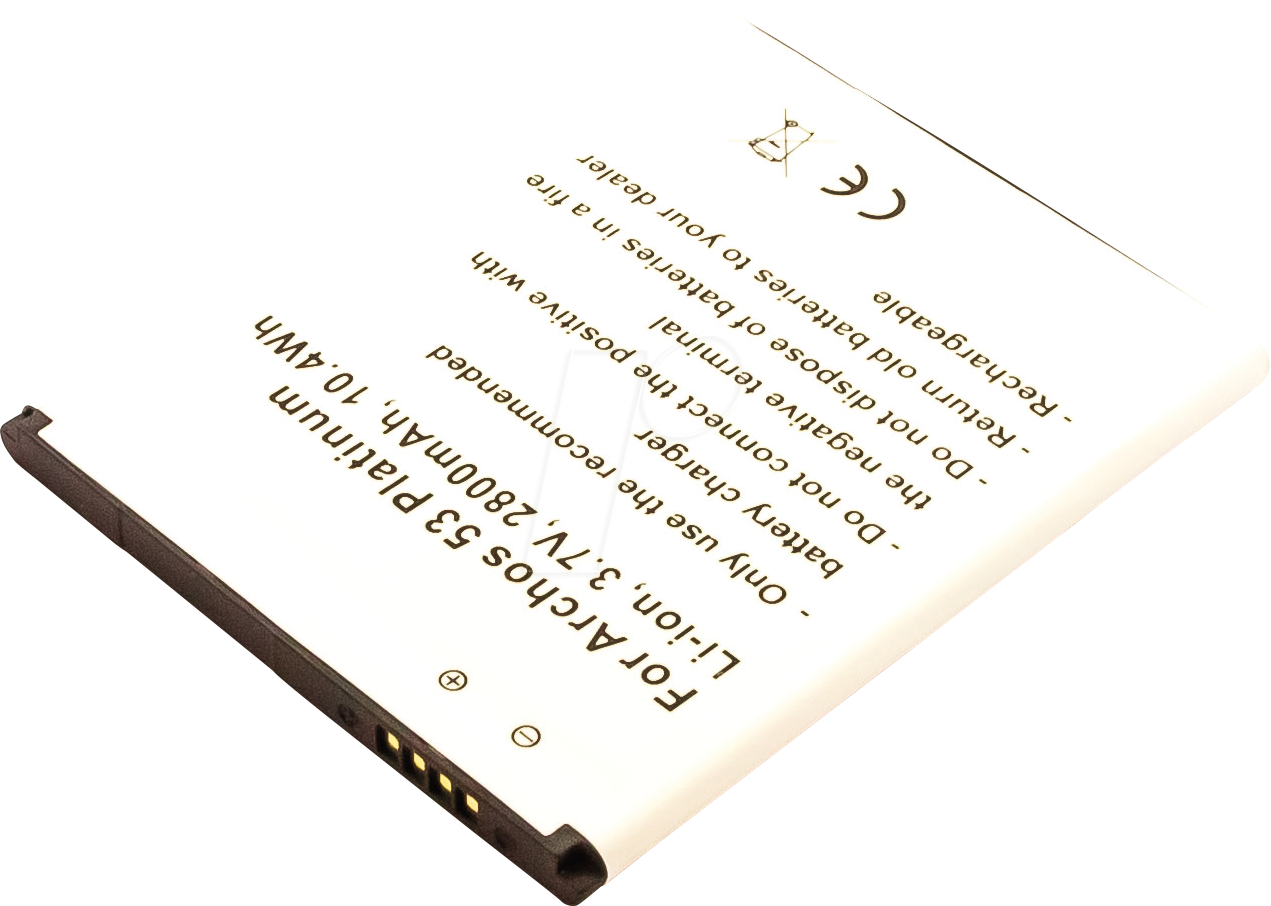 For Archos 53 Platinum
Li-ion, 3.7V, 2800mAh, 10.4Wh
- Only use the recommended
battery charger
- Do not connect the positive with
the negative terminal
- Do not dispose of batteries in a fire
- Return old batteries to your dealer
- Rechargeable
CE
+
−